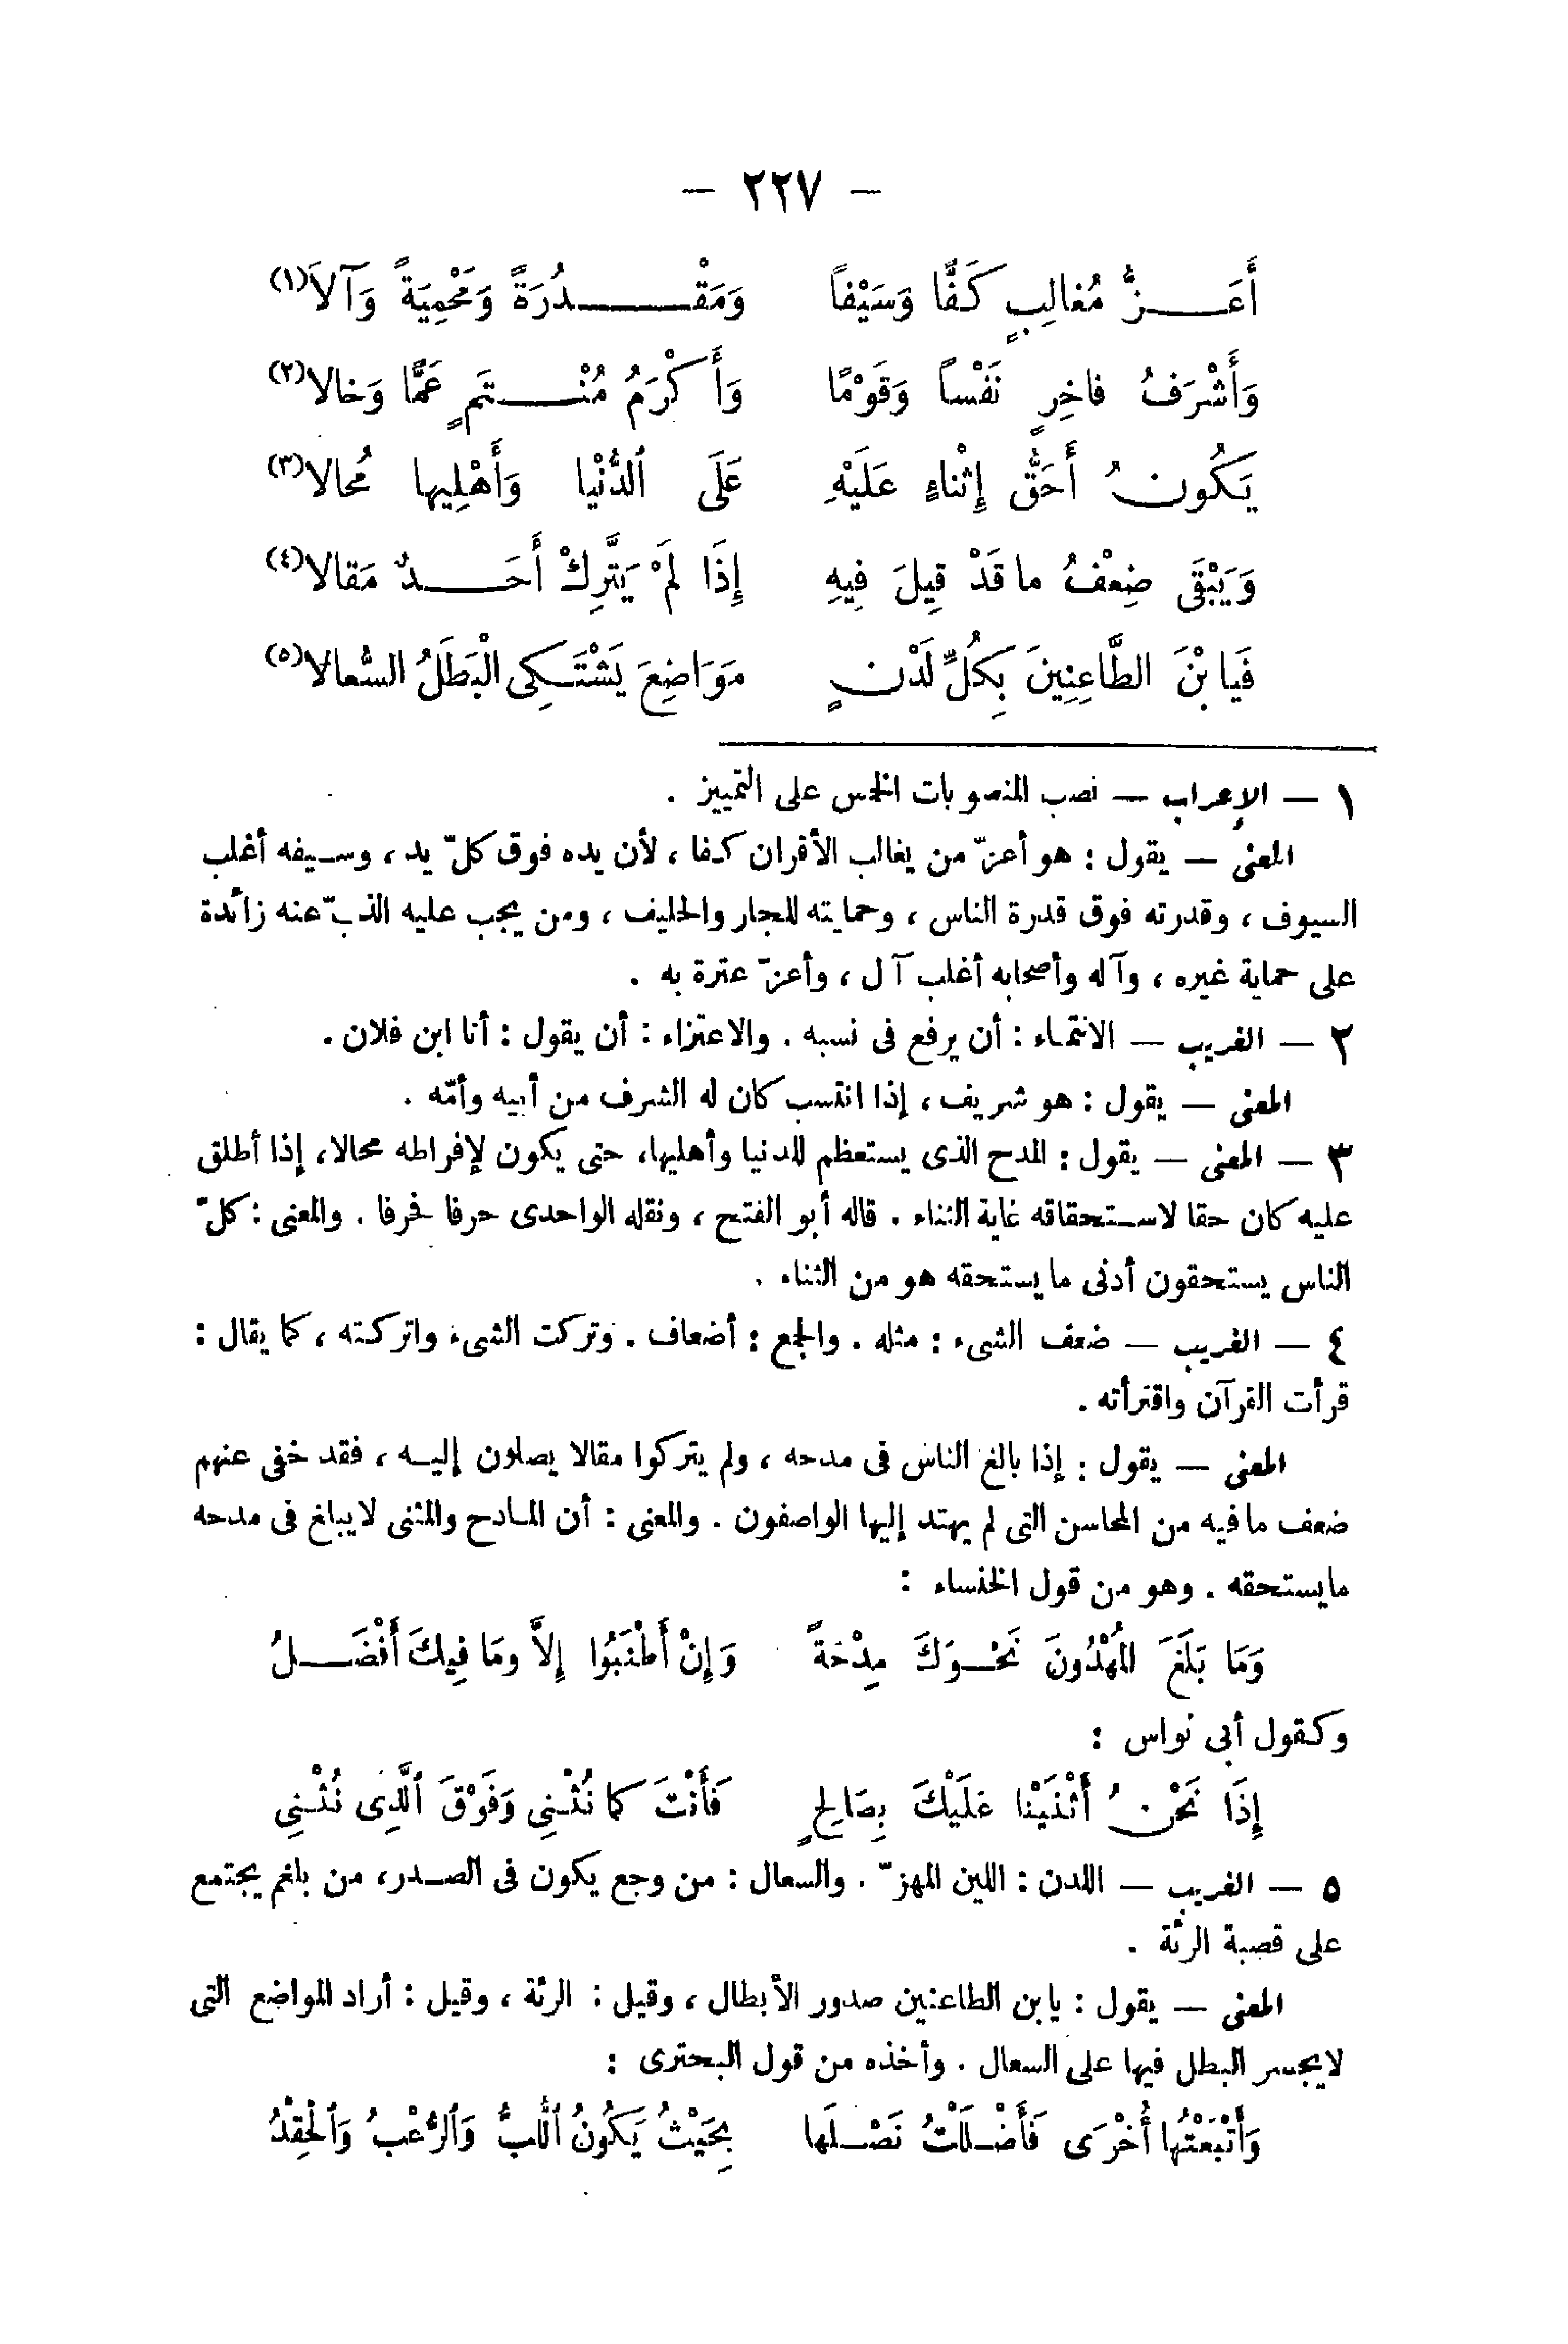 — ٢٢٧ —
أَعَـــزُّ مُغالِبٍ كَفًّا وَسَيْفاً وَمَقْـــدُرَةً وَمَحْمِيَةً وَآلاَ(١)
وَأَشْرَفُ فاخِرٍ نَفْساً وَقَوْمًا وَأَكْرَمُ مُنْـــتَمٍ عَمًّا وَخالا(٢)
يَكُونُ أَحَقُّ إِثْناءٍ عَلَيْهِ عَلَى ٱلدُّنْيا وَأَهْلِيها مُحالا(٣)
وَيَبْقَى ضِعْفُ ما قَدْ قِيلَ فِيهِ إِذَا لَمْ يَتَّرِكْ أَحَـــدٌ مَقالا(٤)
فَيا بْنَ الطَّاعِنِينَ بِكُلِّ لَدْنٍ مَوَاضِعَ يَشْتَـكِى الْبَطَلُ السُّعالا(٥)
١ — الإعراب — نصب المنصوبات الخمس على التمييز .
المعنى — يقول : هو أعزّ من يغالب الأقران كفا ، لأن يده فوق كلّ يد ، وسـيفه أغلب
السيوف ، وقدرته فوق قدرة الناس ، وحمايته للجار والحليف ، ومن يجب عليه الذبّ عنه زائدة
على حماية غيره ، وآله وأصحابه أغلب آل ، وأعزّ عترة به .
٢ — الغريب — الانتماء : أن يرفع فى نسبه . والاعتزاء : أن يقول : أنا ابن فلان .
المعنى — يقول : هو شريف ، إذا انتسب كان له الشرف من أبيه وأمّه .
٣ — المعنى — يقول : المدح الذى يستعظم للدنيا وأهليها، حتى يكون لإفراطه محالا، إذا أطلق
عليه كان حقا لاسـتحقاقه غاية الثناء . قاله أبو الفتح ، ونقله الواحدى حرفا فحرفا . والمعنى : كلّ
الناس يستحقون أدنى ما يستحقه هو من الثناء .
٤ — الغريب — ضعف الشىء : مثله . والجمع : أضعاف . وتركت الشىء واتركـته ، كما يقال :
قرأت القرآن واقترأته .
المعنى — يقول : إذا بالغ الناس فى مدحه ، ولم يتركوا مقالا يصلون إليـه ، فقد خفى عنهم
ضعف مافيه من المحاسن التى لم يهتد إليها الواصفون . والمعنى : أن المـادح والمثنى لا يبلغ فى مدحه
مايستحقه . وهو من قول الخنساء :
وَمَا بَلَغَ المُهْدُونَ نَحْـوَكَ مِدْحَةً وَإِنْ أَطْنَبُوا إِلاَّ ومَا فِيكَ أَفْضَـــلُ
وكقول أبى نواس :
إِذَا نَحْنُ أَثْنَيْنا عَلَيْكَ بِصَالِحٍ فَأَنْتَ كما نُثْـنِى وَفَوْقَ ٱلَّذِى نُثْـنِى
٥ — الغريب — اللدن : اللين المهزّ . والسعال : من وجع يكون فى الصـدر، من بلغم يجتمع
على قصبة الرئة .
المعنى — يقول : يا بن الطاعنين صدور الأبطال ، وقيل : الرئة ، وقيل : أراد المواضع التى
لايجسر البطل فيها على السعال . وأخذه من قول البحترى :
وَأَتْبَعْتُها أُخْرَى فَأَضْـلَلْتُ نَصْـلَها بِحَيْثُ يَكُونُ ٱللُّبُّ وَٱلرُّعْبُ وَٱلْحِقْدُ